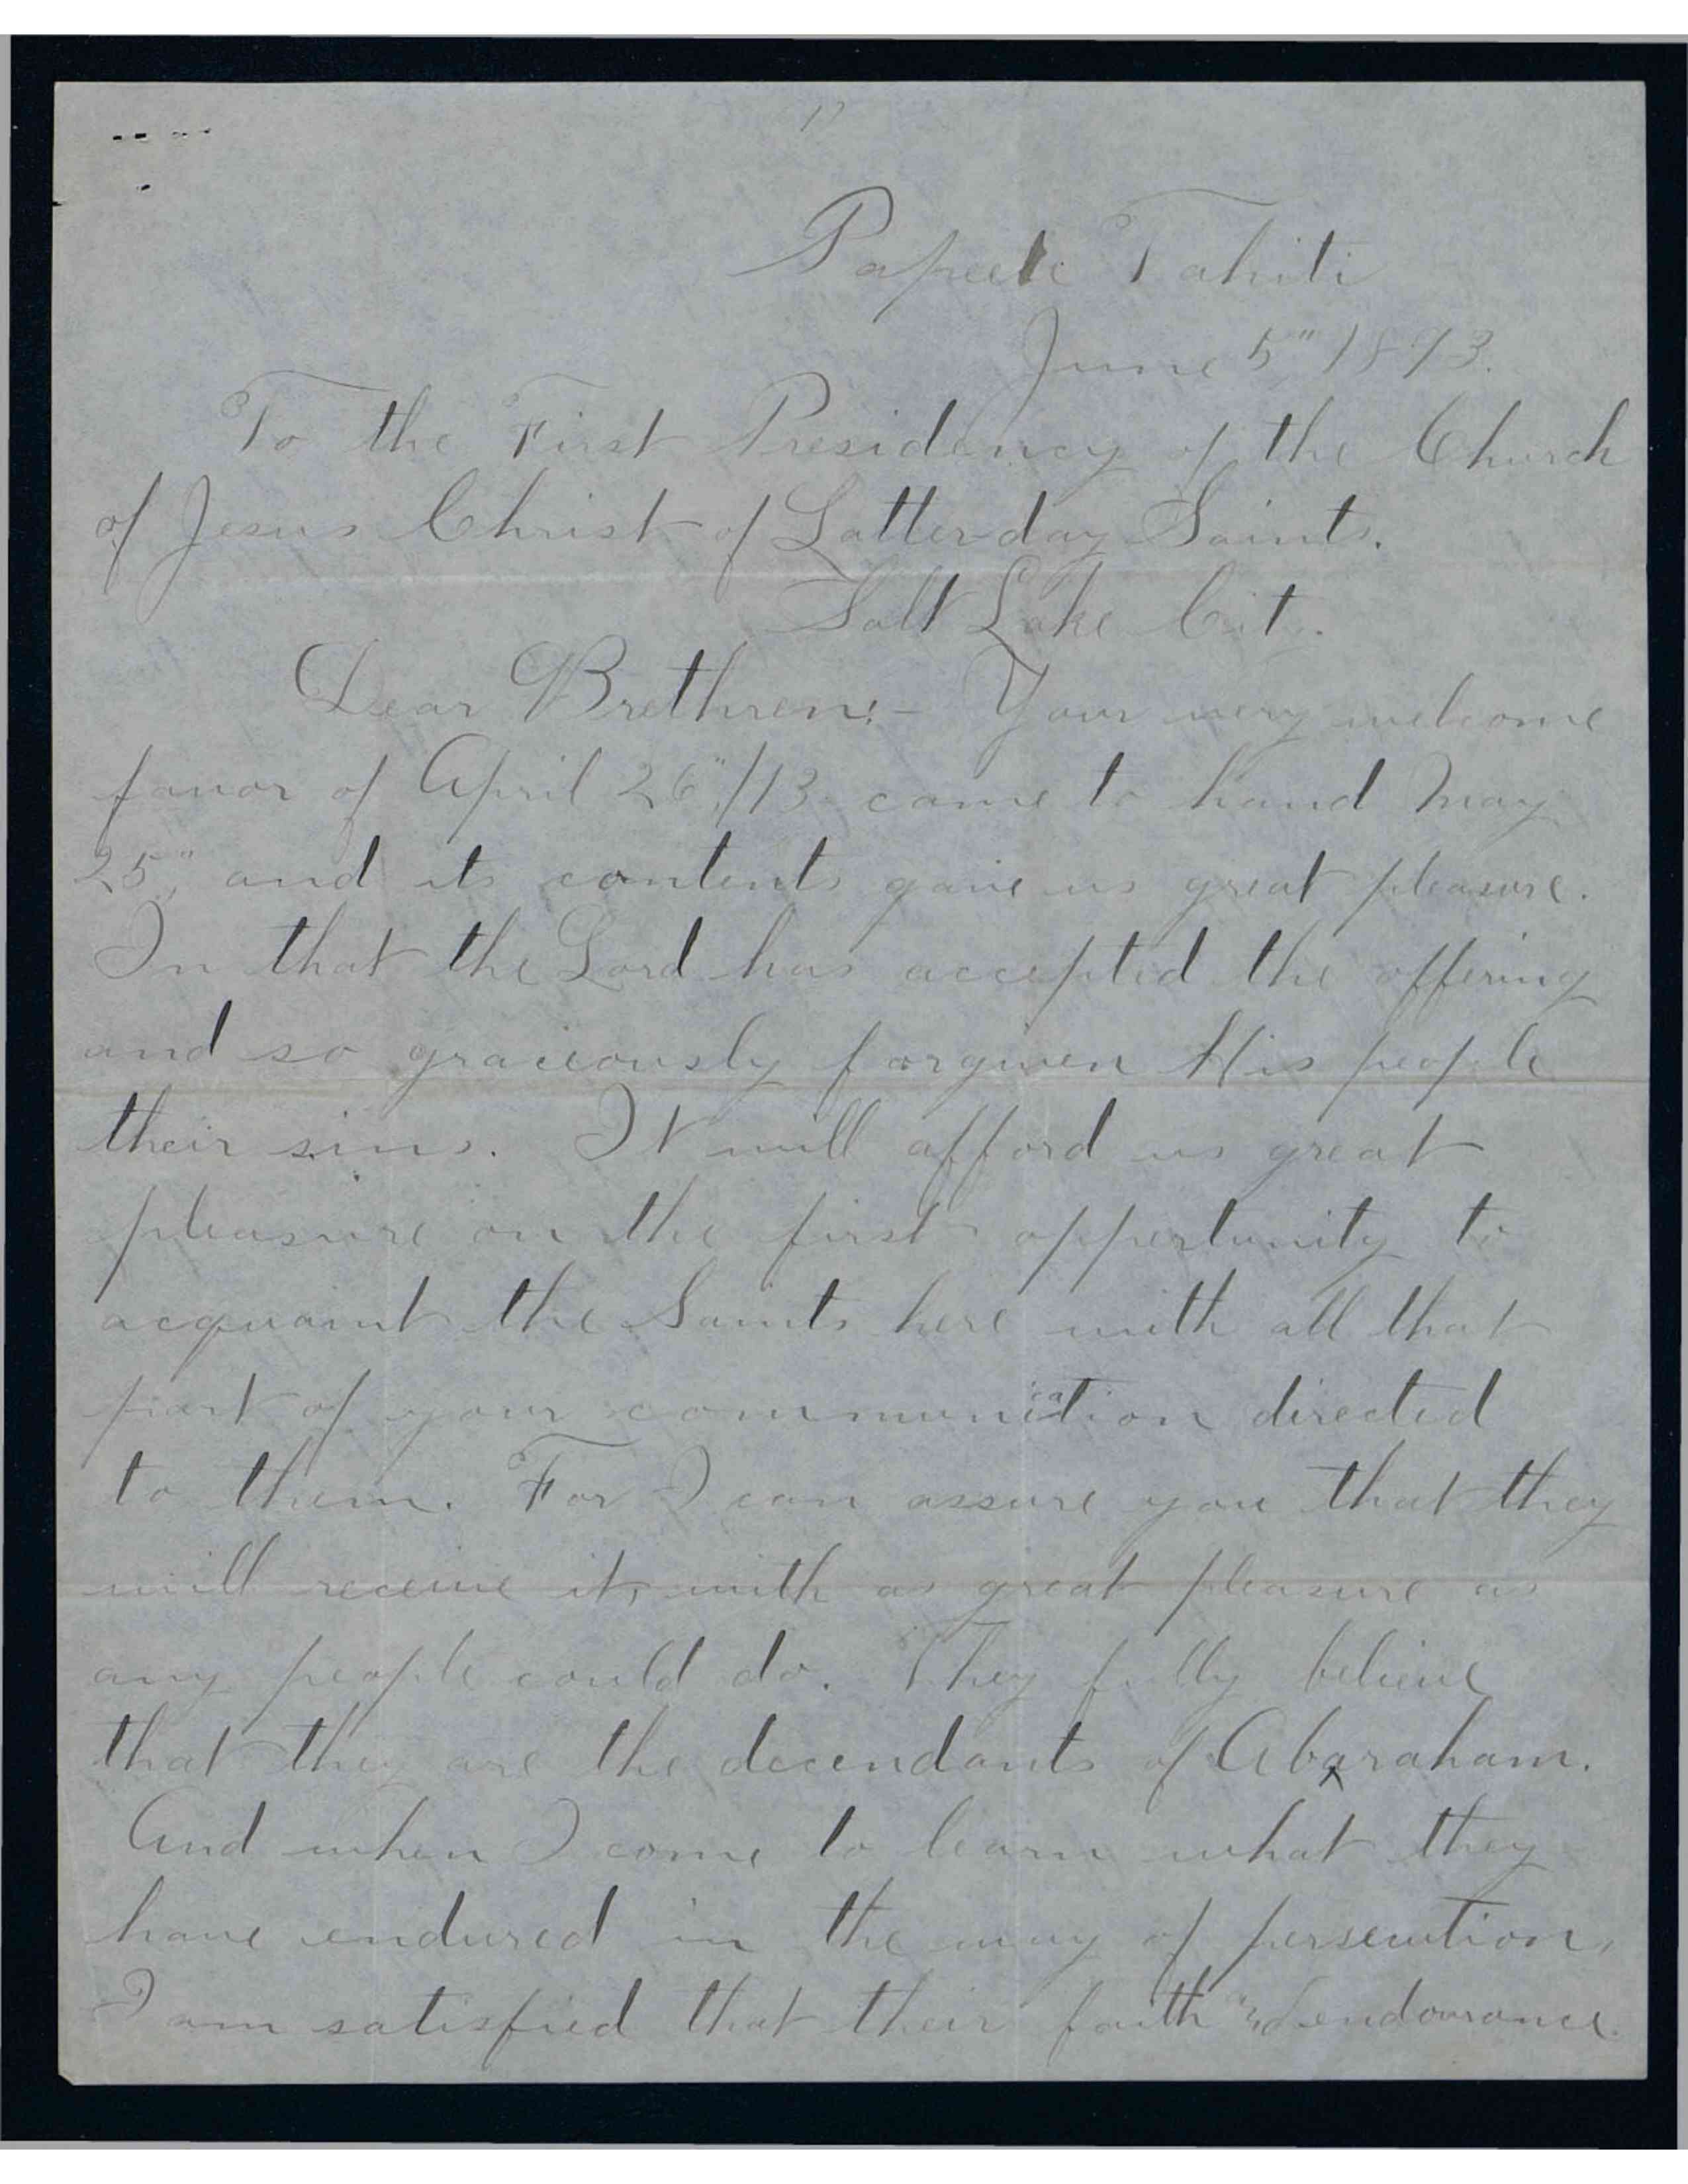 Papeete Tahiti
June 5" 1893.
To the First Presidency of the Church
of Jesus Christ of Latter-day Saints.
Salt Lake Cit.
Dear Brethren:- Your very welcome
favor of April 26"/93 came to hand May
25", and its contents gave us great pleasure.
In that the Lord has accepted the offering
and so graciously forgiven His people
their sins. It will afford us great
pleasure on the first oppertunity to
acquaint the Saints here with all that
part of your communication directed
to them. For I can assure you that they
will receive it, with as great pleasure as
any people could do. They fully believe
that they are the decendants of Abaraham.
And when I come to learn what they
have endured in the way of persecution,
I am satisfied that their faith and endourance.